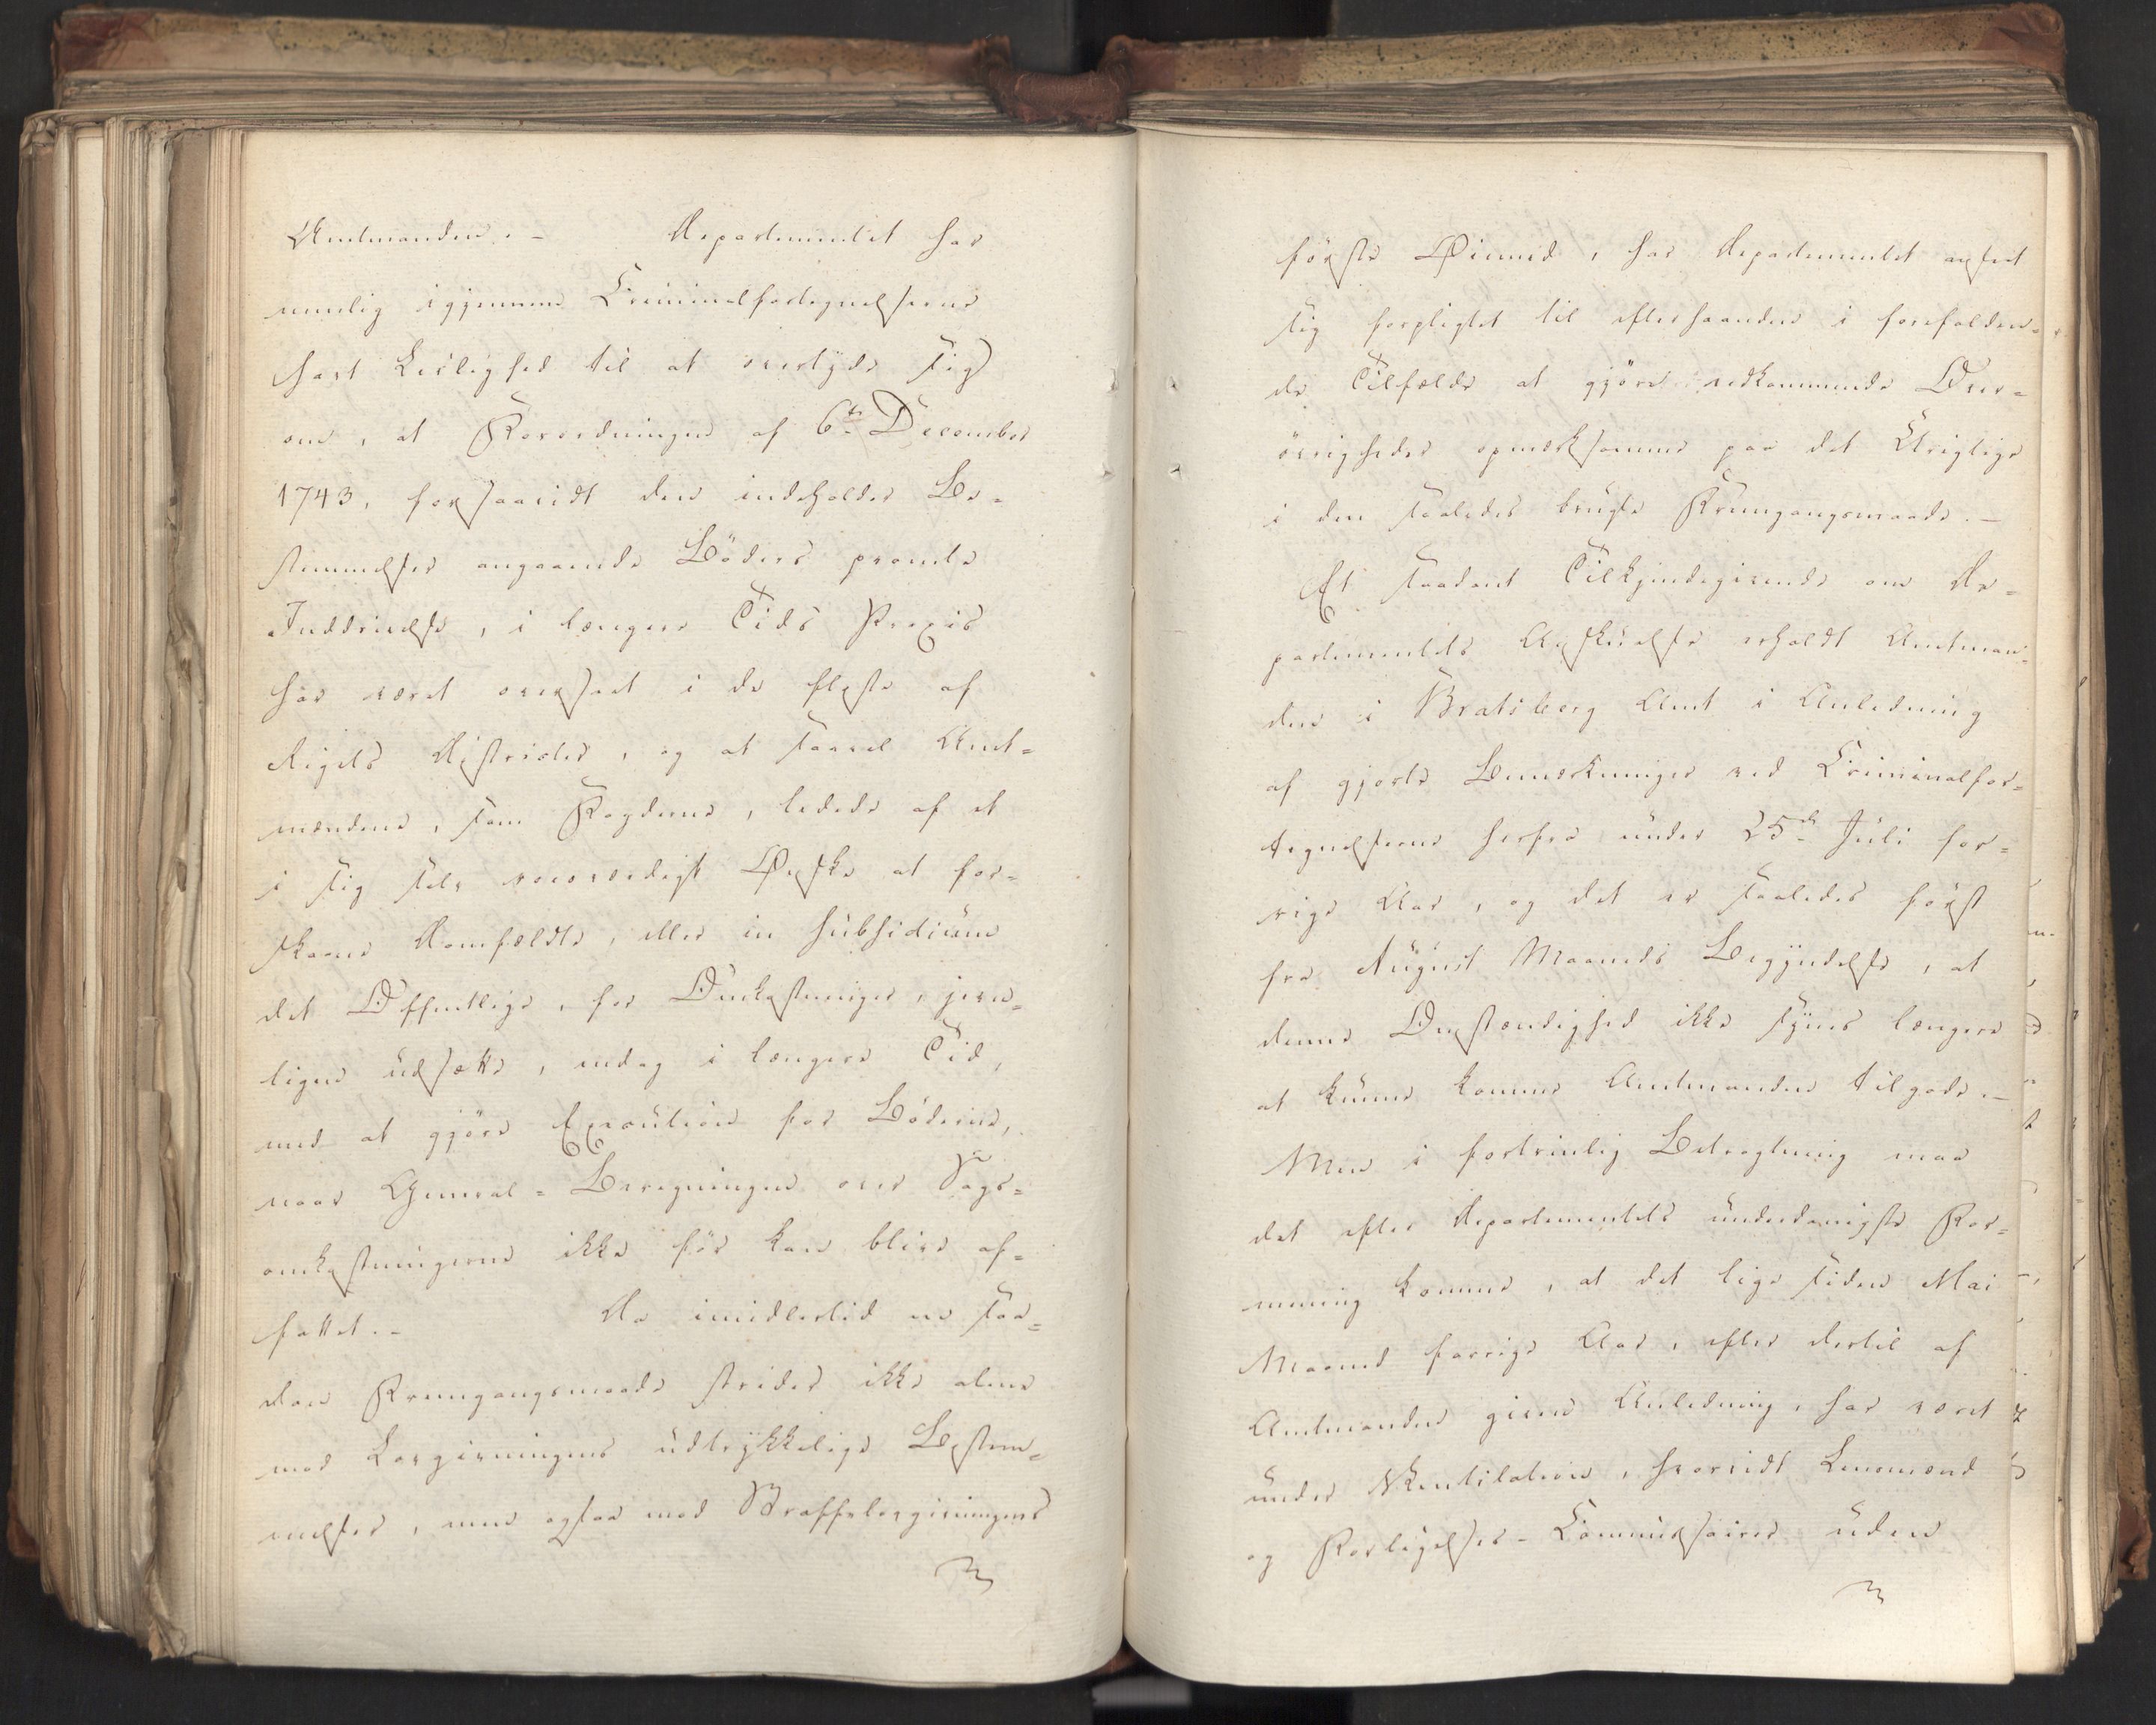 Amtmanden. – Departementet har
nemlig igjennem Criminalfortegnelserne
havt Leilighed til at overtyde sig
om, at Forordningen af 6te December
1743, forsaavidt den indeholder Be-
stemmelser angaaende Böders promte
Inddrivelse, i længere Tids Praxis
har været overseet i de fleste af
Rigets Districter, og at saavel Amt-
mændene, som Fogderne, ledede af et
i sig selv roesværdigt Ønske at for-
skaane Domfældte, eller in subsidium
det Offentlige, for Omkostninger, jevn-
ligen udsætte, endog i længere Tid,
med at gjöre Execution for Böderne,
naar General-Beregningen over Sags-
omkostningerne ikke för kan blive af-
fattet. – Da imidlertid en saa-
dan Fremgangsmaade strider ikke alene
mod Lovgivningens udtrykkelige Bestem-
melser, men ogsaa mod Straffelovgivningens
förste Øiemed, har Departementet anseet
sig forpligtet til efterhaanden i forefalden-
de Tilfælde at gjöre vedkommende Over-
övrigheder opmærksomme paa det Urigtige
i den saaledes brugte Fremgangsmaade. –
Et saadant Tilkjendegivende om De-
partementets Anskuelse erholdt Amtman-
den i Bratsberg Amt i Anledning
af gjorte Bemærkninger ved Criminalfor-
tegnelserne herfra under 25de Juli for-
rige Aar, og det er saaledes först
fra August Maaneds Begyndelse, at
denne Omstændighed ikke synes længere
at kunne komme Amtmanden tilgode. –
Men i fortrinlig Betragtning maa
det efter Departementets underdanigste For-
mening komme, at det lige siden Mai
Maaned forrige Aar, efter dertil af
Amtmanden given Anledning, har været
under Ventilation, hvorvidt Lensmænd
og Forligelses-Commissairer uden